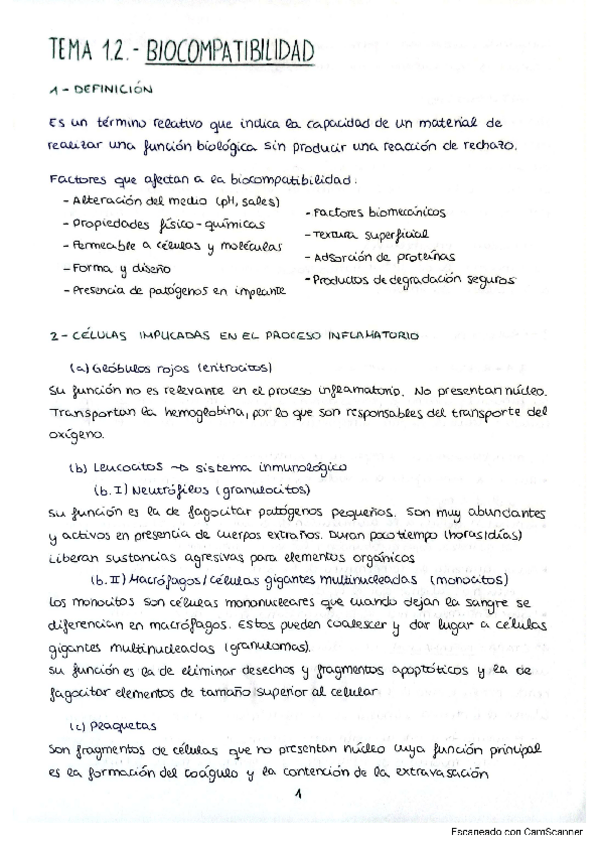 TEMA 1.2.- BIOCOMPATIBILIDAD
1 - DEFINICIÓN
Es un término relativo que indica la capacidad de un material de
realizar una función biológica sin producir una reacción de rechazo.
Factores que afectan a la biocompatibilidad:
- Alteración del medio (pH, sales)
- Propiedades físico-químicas
- Permeable a células y moléculas
- Forma y diseño
- Presencia de patógenos en implante
- Factores biomecánicos
- Textura superficial
- Adsorción de proteínas
- Productos de degradación seguros
2 - CÉLULAS IMPLICADAS EN EL PROCESO INFLAMATORIO
(a) Glóbulos rojos (eritrocitos)
Su función no es relevante en el proceso inflamatorio. No presentan núcleo.
Transportan la hemoglobina, por lo que son responsables del transporte del
oxígeno.
(b) Leucocitos → sistema inmunológico
(b.I) Neutrófilos (granulocitos)
Su función es la de fagocitar patógenos pequeños. Son muy abundantes
y activos en presencia de cuerpos extraños. Duran poco tiempo (horas/días)
Liberan sustancias agresivas para elementos orgánicos
(b.II) Macrófagos/células gigantes multinucleadas (monocitos)
Los monocitos son células mononucleares que cuando dejan la sangre se
diferencian en macrófagos. Estos pueden coalescer y dar lugar a células
gigantes multinucleadas (granulomas).
Su función es la de eliminar desechos y fragmentos apoptóticos y la de
fagocitar elementos de tamaño superior al celular
(c) Plaquetas
Son fragmentos de células que no presentan núcleo cuya función principal
es la formación del coágulo y la contención de la extravasación
1
Escaneado con CamScanner